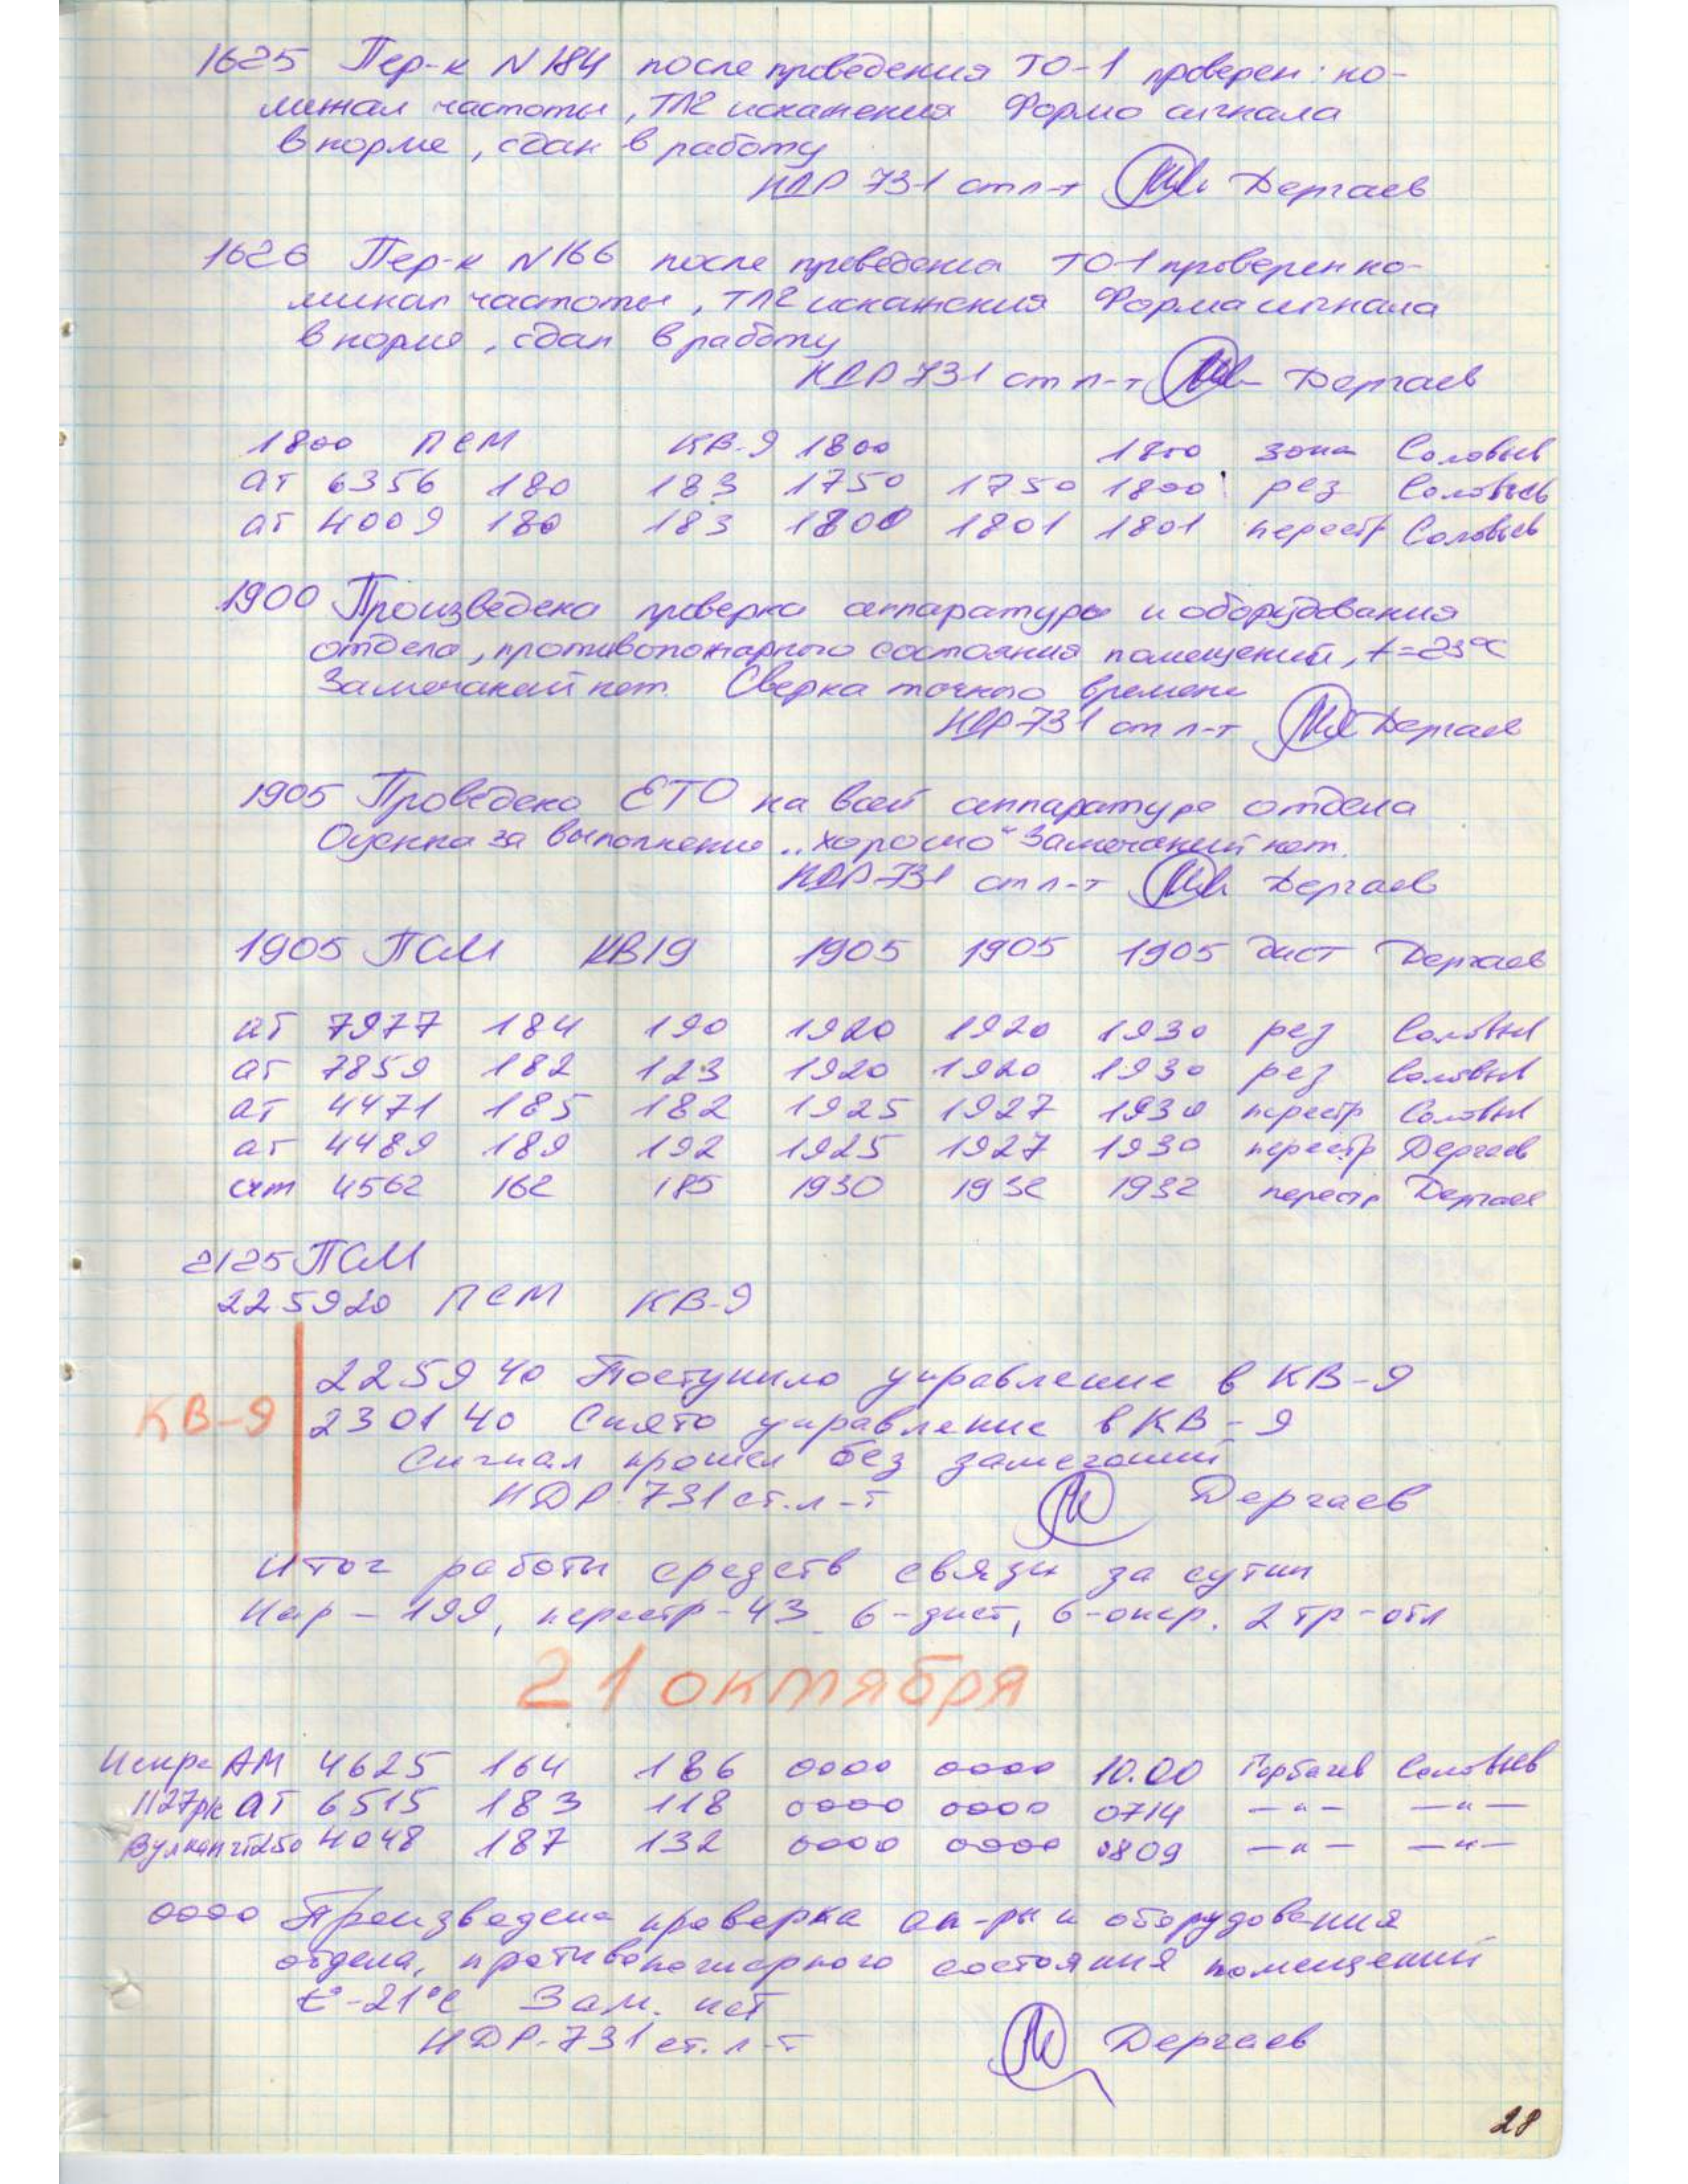 1625 Пер-к N 184 после проведения ТО-1 проверен: но-
минал частоты, ТЛГ искажения Форма сигнала
в норме, сдан в работу
НДР 731 ст л-т Дергаев
1626 Пер-к N 166 после проведения ТО-1 проверен но-
минал частоты, ТЛГ искажения Форма сигнала
в норме, сдан в работу
НДР 731 ст л-т Дергаев
1800 ПСМ КВ-9 1800 1800 зона Соловьев
ат 6356 180 183 1750 1750 1800 рез Соловьев
ат 4009 180 183 1800 1801 1801 перестр Соловьев
1900 Произведена проверка аппаратуры и оборудования
отдела, противопожарного состояния помещений, t=23°С
Замечаний нет. Сверка точного времени
НДР-731 ст л-т Дергаев
1905 Проведено ЕТО на всей аппаратуре отдела
Оценка за выполнение „хорошо“ Замечаний нет.
НДР-731 ст л-т Дергаев
1905 ПСМ КВ19 1905 1905 1905 дист Дергаев
ат 7977 184 190 1920 1920 1930 рез Соловьев
ат 7859 182 123 1920 1920 1930 рез Соловьев
ат 4471 185 182 1925 1927 1930 перестр Соловьев
ат 4489 189 192 1925 1927 1930 перестр Дергаев
4562 162 185 1930 1932 1932 перестр Дергаев
2125 ПСМ
225920 ПСМ КВ-9
225940 Поступило управление в КВ-9
КВ-9 230140 Снято управление в КВ-9
Сигнал прошел без замечаний
НДР-731 ст. л-т Дергаев
Итог работы средств связи за сутки
Нар - 199, перестр - 43 6-дист, 6-опер. 2 тр-отл
21 октября
Искра АМ 4625 164 186 0000 0000 10.00 Горбачев Соловьев
1127рк ат 6515 183 118 0000 0000 0714 —〃— —〃—
Вулкан чт250 4048 187 132 0000 0000 0809 —〃— —〃—
0000 Произведена проверка ап-ры и оборудования
отдела, противопожарного состояния помещений
t°-21°С Зам. нет
НДР-731 ст. л-т Дергаев
28